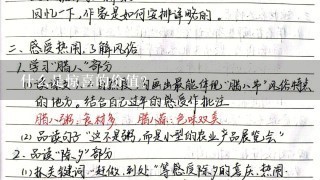 回忆一下,作家是如何安排详略的。
二、感受热闹,了解风俗
1.学习“腊八”部分
画出最能体现“腊八节”风俗特点
的地方。结合自己过年的感受作批注
腊八粥:食材多 腊八蒜:色味双美
(2)品读句子“这不是粥,而是小型的农业产品展览会”
2.品读“除夕”部分
(1)抓关键词“赶做,到处”等感受除夕的喜庆、热闹